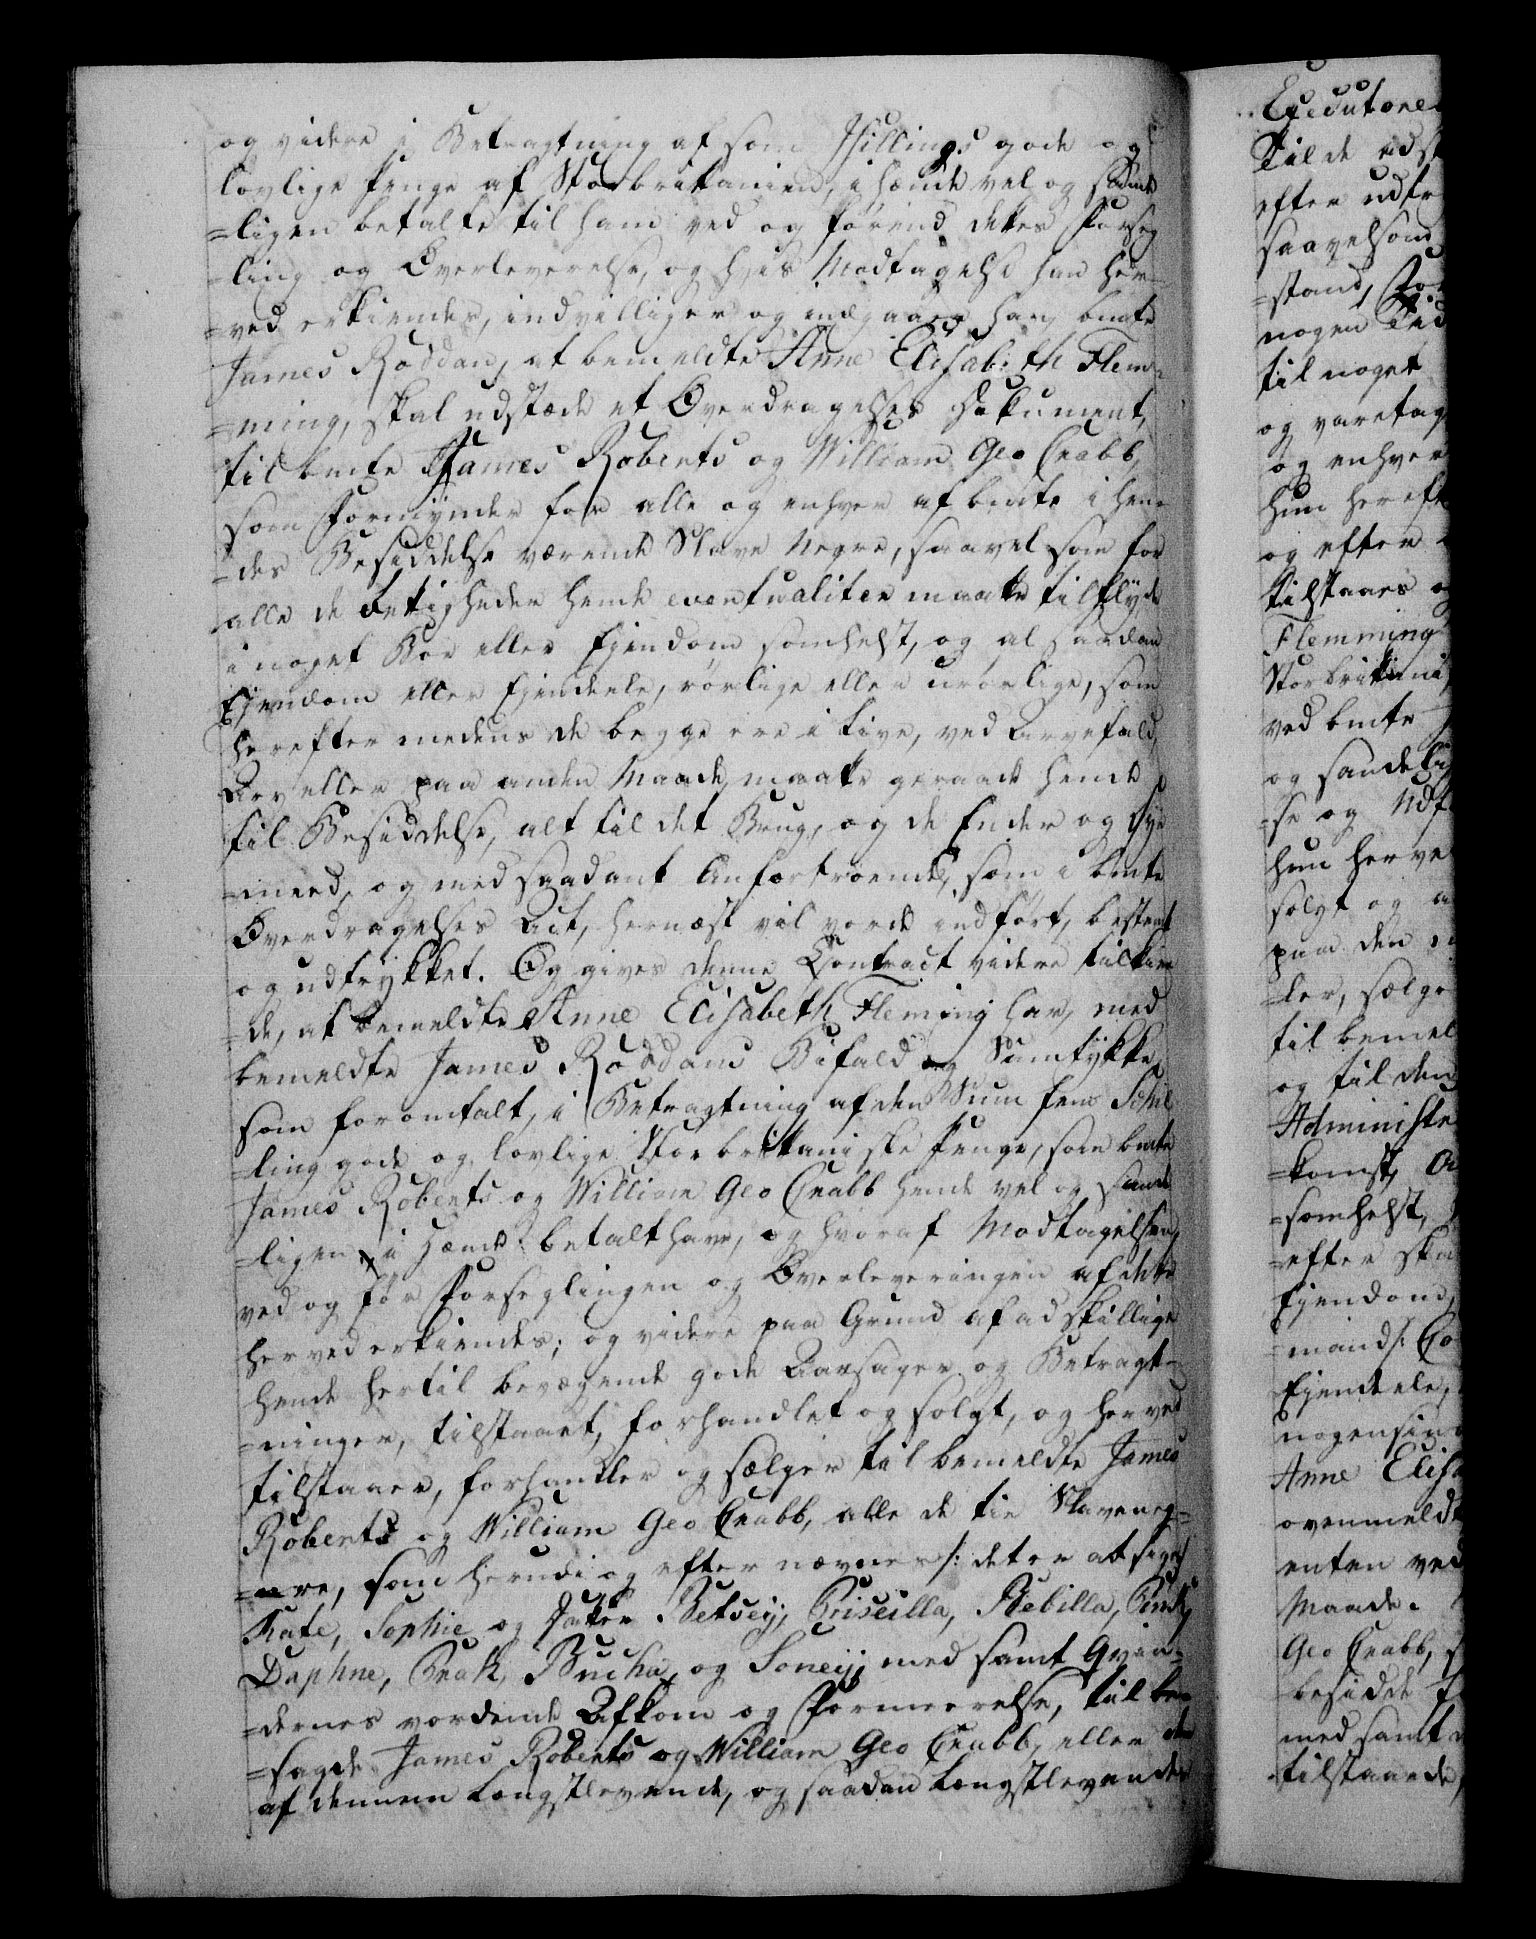 og videre i Betragtning af fem Skillings gode og
lovlige Penge af Storbritanien, i hænde vel og sand
=ligen betalte til ham ved og førend dettes Forseg
=ling og Overleverelse, og hvis Modtagelse han her=
=ved erkiender, indvilliger og indgaaer han bmte
James Roddan, at bemeldte Anne Elisabeth Flem=
=ming, skal udstæde et Overdragelses Dokument,
til bmte James Roberts og William Geo Crabb,
som Formynder for alle og enhver af bmte i hen=
=des Besiddelse værende Slave Negre, saavel som for
alle de Retigheder hende eventualiter maatte tilflyde
i noget Boe eller Ejendom somhelst, og al saadan
Ejendom eller Ejendele, rørlige eller urørlige, som
herefter medens de begge ere i Live, ved Arvefald,
Arv eller paa anden Maade, maatte geraade hende
til Besiddelse, alt til det Brug, og de Ender og Øye
=meed, og med saadant Anfortroende, som i bmte
Overdragelses Act, hernæst vil vorde indført, bestemt
og udtrykket. Og gives denne Contract videre tilkien
=de, at bemeldte Anne Elisabeth Fleming har, med
bemeldte James Roddans Bifald og Samtykke,
som foromtalt, i Betragtning af den Sum fem Schil
=ling gode og lovlige Storbrittaniske Penge, som bmte
James Roberts og William Geo Crabb hende vel og sand
=ligen i Hænde betalt have, og hvoraf Modtagelsen,
ved og før Forseglingen og Overleveringen af dette
herved erkiendes; og videre paa Grund af adskillige
hende hertil bevægende gode Aarsager og Betragt=
=ninger, tilstaaet, forhandlet og solgt, og herved
tilstaaer, forhandler og sælger til bemeldte James
Roberts og William Geo Crabb, alle de tie Slaveneg=
=re, som herudi og efter nævnes /: det er at sige/
Kate, Sophie og Betsey, Priscilla, Sebilla,
Daphne, og med samt Qvin=
=dernes vordende Afkom og Formeerelse, til be=
=sagde James Roberts og William Geo Crabb, eller den
af dennem Længstlevende, og saadan Længstlevendes
Executore
til de udst
efter udtr
saavelsom
=stand,
nogen Tid
til noget
og varetag
og enhver
hun hereft
og efter
tilstaaes og
Flemming
Storbritani
ved bmte J
og sandelig
=se og Udf
hun herve
solgt og
paa den
=ler, sælge
til bemel
og til den
Administr
=komst,
=somhelst,
=efter ska
Ejendom,
=mand/:
Ejendele,
nogensin
Anne Elisa
ovenmeldt
enten ved
Maade.
Geo Crabb, s
besidde
med samt
tilstaaede,